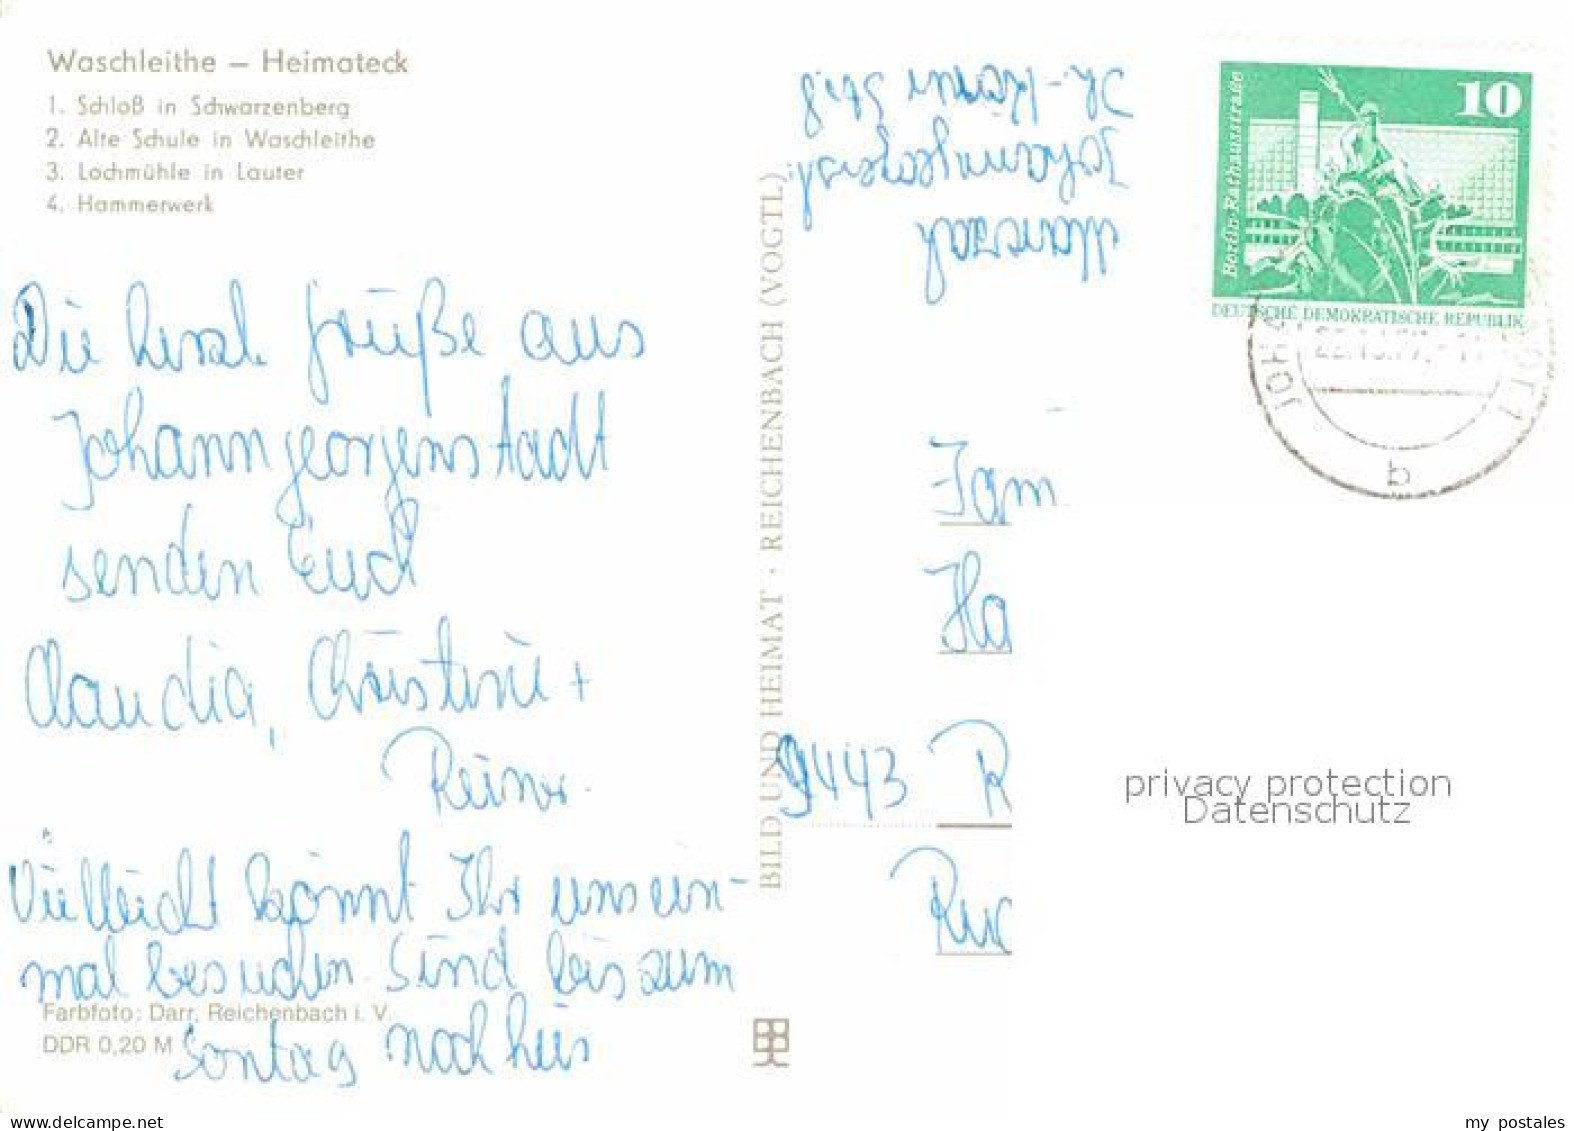 Waschleithe – Heimateck
1. Schloß in Schwarzenberg
2. Alte Schule in Waschleithe
3. Lochmühle in Lauter
4. Hammerwerk
Die herzl. Grüße aus
Johanngeorgenstadt
senden Euch
Claudia, Christine +
Reiner.
Vielleicht könnt Ihr uns ein-
mal besuchen. Sind bis zum
Sontag noch hier
Farbfoto: Darr, Reichenbach i. V.
DDR 0,20 M
BILD UND HEIMAT · REICHENBACH (VOGTL)
Johanngeorgenst.
10
Berlin-Rathausstraße
DEUTSCHE DEMOKRATISCHE REPUBLIK
JOHA
b
Fam
Ha
9443 R
privacy protection
Datenschutz
my-postcards-shop.delcampe.net
my postales